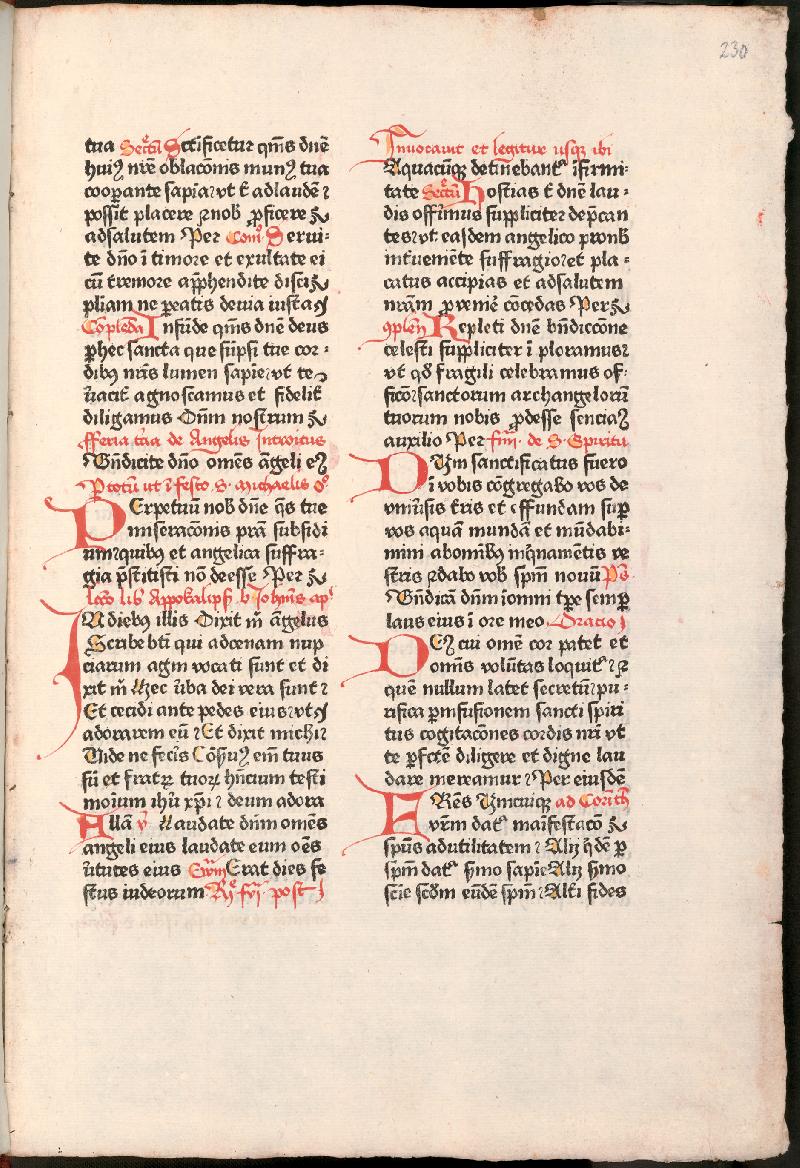 230
tua Secrͣ Sctīficetur qm̄s dn̄e
huiꝰ nr̄e oblacōnis munꝰ tua
cooꝑante sapīa ⁊ vt t̄ ad laudē ⁊
possit placere ⁊ nob ꝓficere
ad salutem Per Com̄ Serui-
te dn̄o ī timore et exultate ei
cū tremore app̄hendite disci
plīam ne ꝑeatis de via iusta
Cōplēda Infūde qm̄s dn̄e deus
ꝑ hec sancta que sūpsīꝰ tue cor-
dibꝰ nr̄is lumen sapīe ⁊ vt te
v̄acit̄ agnoscamus et fidelit̄
diligamus Dn̄m nostrum
fferia tr̄cia de Angelis Introitus
Bn̄dicite dn̄o omēs āgeli eꝰ
P totū ut ī festo S. Michaelis Oͦ
Perpetuū nob dn̄e q̄s tue
miseracōnis pr̄a subsidi
um ⁊ quibꝰ et angelica suffra-
gia p̄stitisti nō deesse Per
Lc̄o lib̄ Appokalips̄ b Ioh̄nis ap̄
In diebꝰ illis Dixit m̄ āgelus
Scribe bt̄i qui ad cenam nup
ciarum agni vocati sunt et di
xit m̄ Hec v̄ba dei vera sunt ⁊
Et cecidi ante pedes eius ⁊ vt
adorarem eū ⁊ Et dixit michi ⁊
Vide ne fecīs Cōs̄uꝰ em̄ tuus
sū et fratꝝ tuoꝝ hn̄cium testi
moīum ih̄u xp̄i ⁊ deum adora
Allā v̄ Laudate dn̄m omēs
angeli eius laudate eum oēs
v̄tutes eius Ewm̄ Erat dies fe
stus iudeorum Rͦ fͣ vj post
Inuocauit et legitur usqꝫ ibi
A quacūqꝫ detīnebantᷣ īfirmi-
tate Secrͣ Hostias t̄ dn̄e lau-
dis offim̄us suppliciter dep̄can
tes ⁊ vt easdem angelico ꝓ nob
int̄ueniēte suffragio ⁊ et pla-
catus accipias et ad salutem
nr̄am ꝓvenīe cōcedas Per
ꝯplen̄ Repleti dn̄e bn̄diccōne
celesti suppliciter īploramus ⁊
vt qd̄ fragili celebramus of-
ficō ⁊ sanctorum archangelorū
tuorum nobis ꝓdesse senciaꝰ
auxilio Per f iiij de S. Spiritu
Dum sanctificatus fuero
ī vobis cōgregabo vos de
vniūsis tr̄is et effundam suꝑ
vos aquā mundā et mūdabi-
mini ab omībꝰ inq̄namētis ve
stris ⁊ dabo vob sp̄m nouū Ps̄
Bn̄dicā dn̄m ī omni tꝑe semꝑ
laus eius ī ore meo Oracio
Deꝰ cui omē cor patet et
omīs volūtas loquitᷣ ⁊
quē nullum latet secretū ⁊ pu-
rifica ꝑ infusionem sancti spiri
tus cogitacōnes cordis nr̄i vt
te ꝑfc̄e diligere et digne lau
dare mereamur ⁊ Per eiusdē
FRēs Vnicuiqꝫ ad Corinth
vr̄m datᷣ maīfestacō
sp̄us ad utilitatem ⁊ Alij q̄dē ꝑ
sp̄m datᷣ s̄mo sapīe Alij s̄mo
scīe scd̄m eūdē sp̄m ⁊ Alt̄i fides